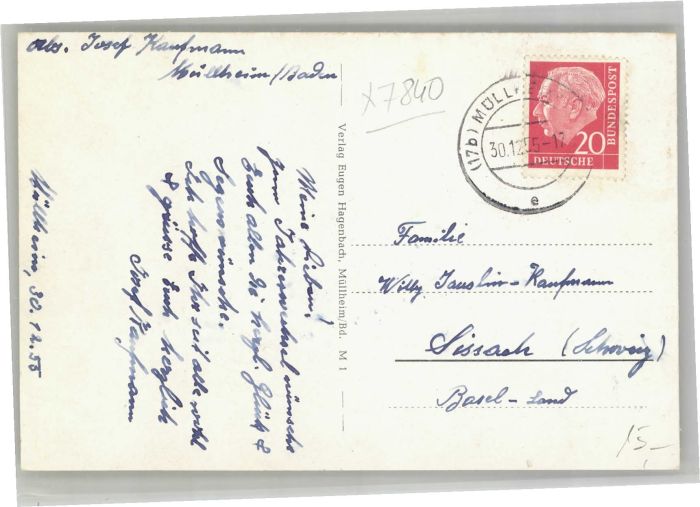 Abs. Josef Kaufmann
Müllheim/Baden
x7840
(17b) MÜLLHEIM
30.12.55-17
e
BUNDESPOST
20
DEUTSCHE
Müllheim, 30.12.55
Meine Lieben!
Zum Jahreswechsel wünsche
Euch allen die herzl. Glück &
Segenswünsche.
Ich hoffe Ihr seit alle wohl
& grüsse Euch herzlich
Josef Kaufmann
Verlag Eugen Hagenbach, Müllheim/Bd. M 1
Familie
Willy Jauslin-Kaufmann
Sissach (Schweiz)
Basel-Land
15,-